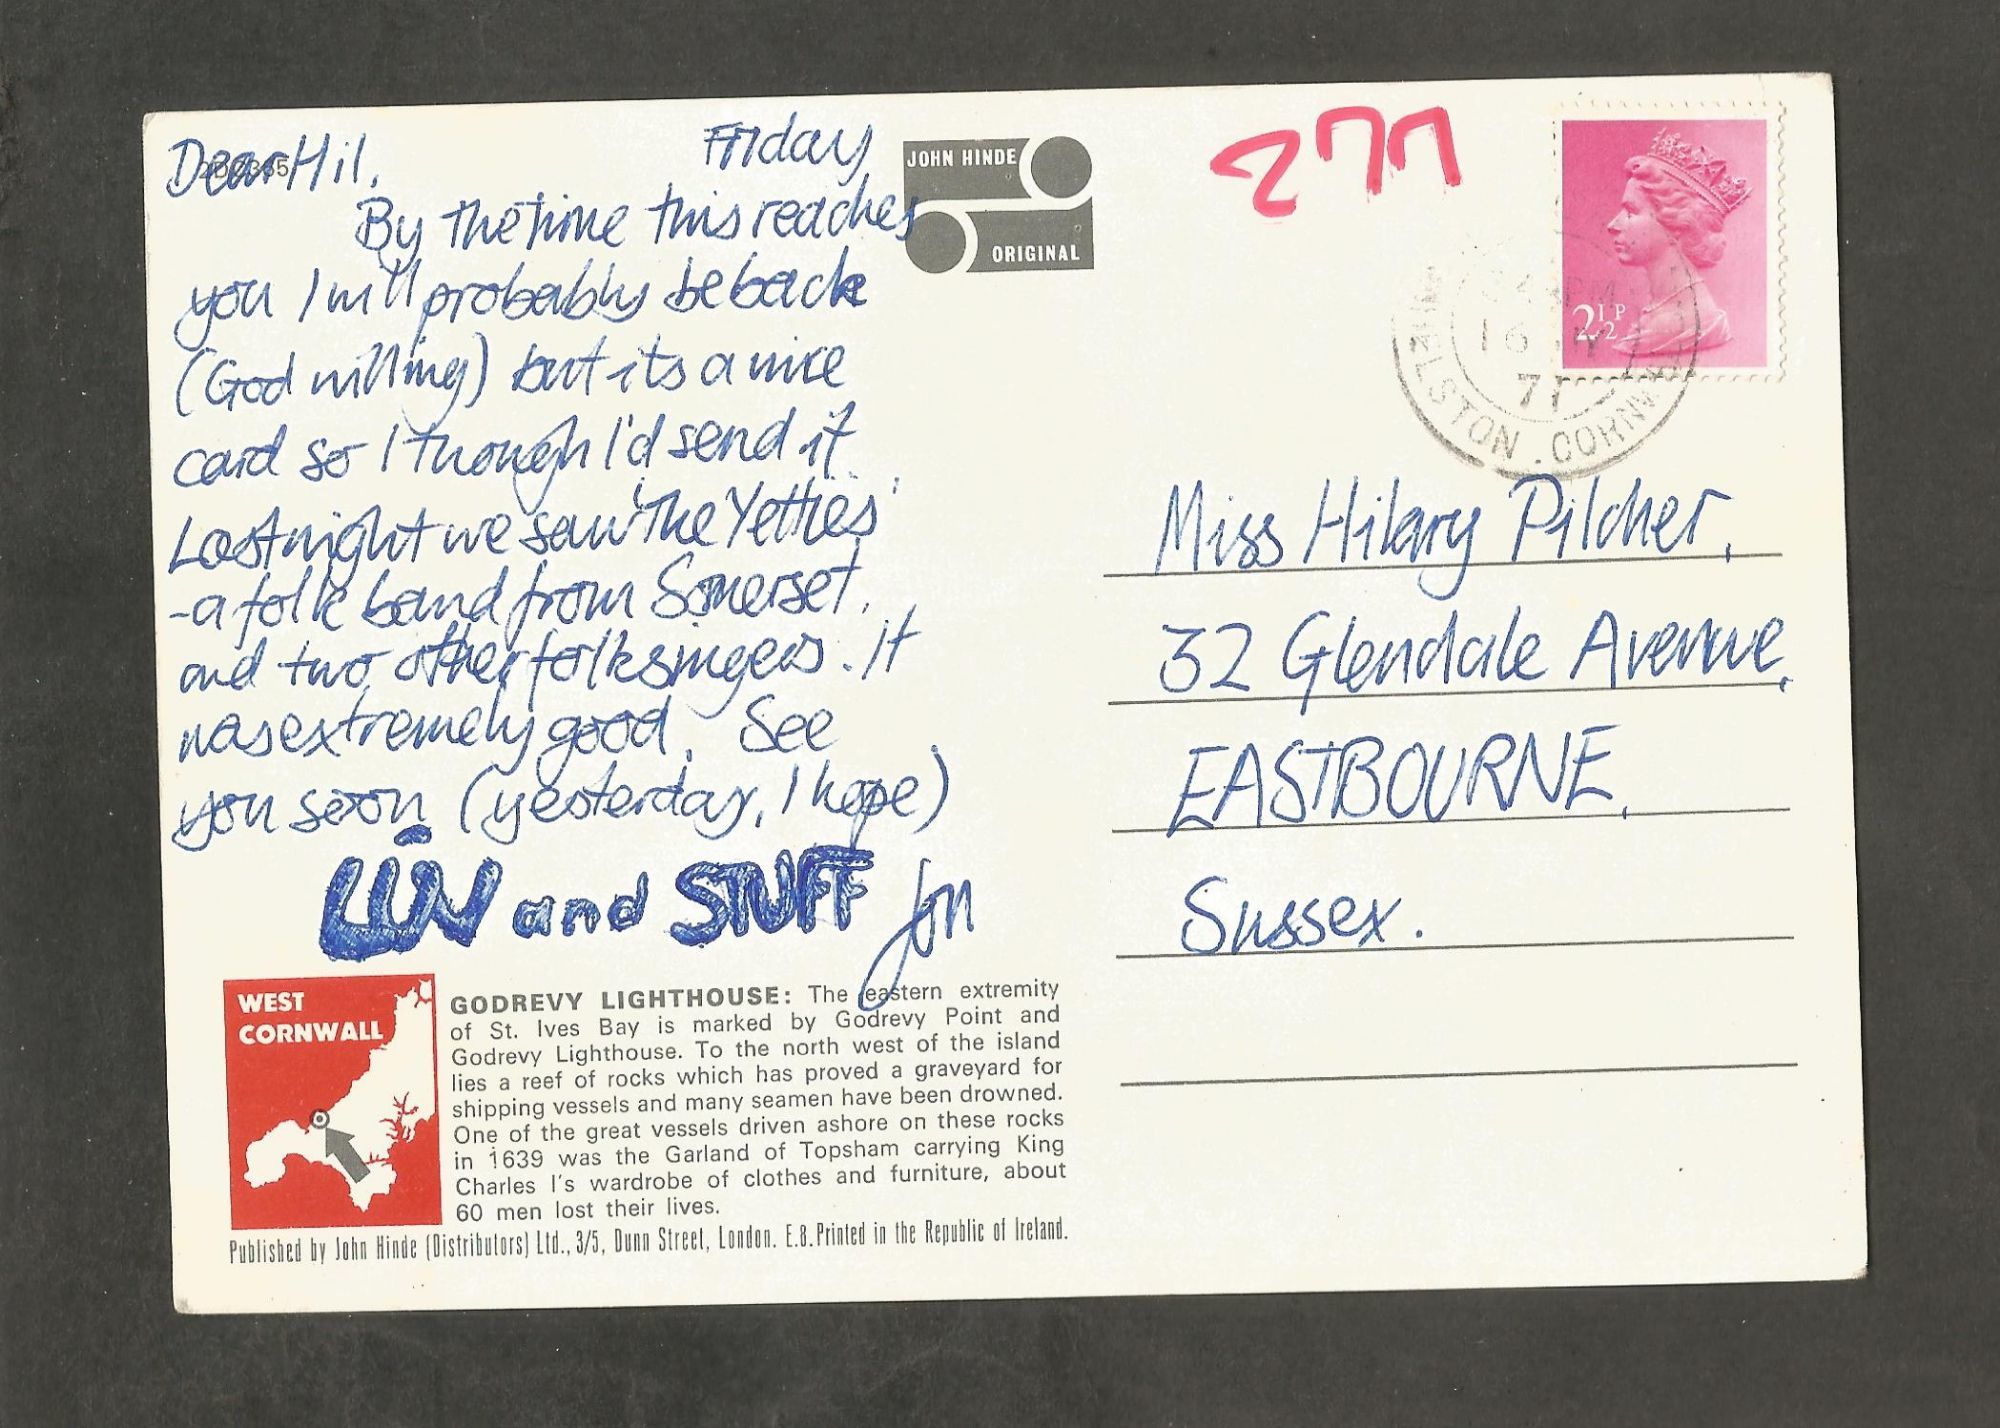 Dear Hil, Friday
By the time this reaches
you I will probably be back
(God willing) but its a nice
card so I though I'd send it.
Last night we saw 'The Yetties'
- a folk band from Somerset,
and two other folksingers. It
was extremely good. See
you soon (yesterday, I hope)
LUV and STUFF Jon
JOHN HINDE
ORIGINAL
277
2½P
16
71
HELSTON . CORNWALL
Miss Hilary Pilcher,
32 Glendale Avenue,
EASTBOURNE,
Sussex.
WEST
CORNWALL
GODREVY LIGHTHOUSE: The eastern extremity
of St. Ives Bay is marked by Godrevy Point and
Godrevy Lighthouse. To the north west of the island
lies a reef of rocks which has proved a graveyard for
shipping vessels and many seamen have been drowned.
One of the great vessels driven ashore on these rocks
in 1639 was the Garland of Topsham carrying King
Charles I's wardrobe of clothes and furniture, about
60 men lost their lives.
Published by John Hinde (Distributors) Ltd., 3/5, Dunn Street, London. E.8. Printed in the Republic of Ireland.